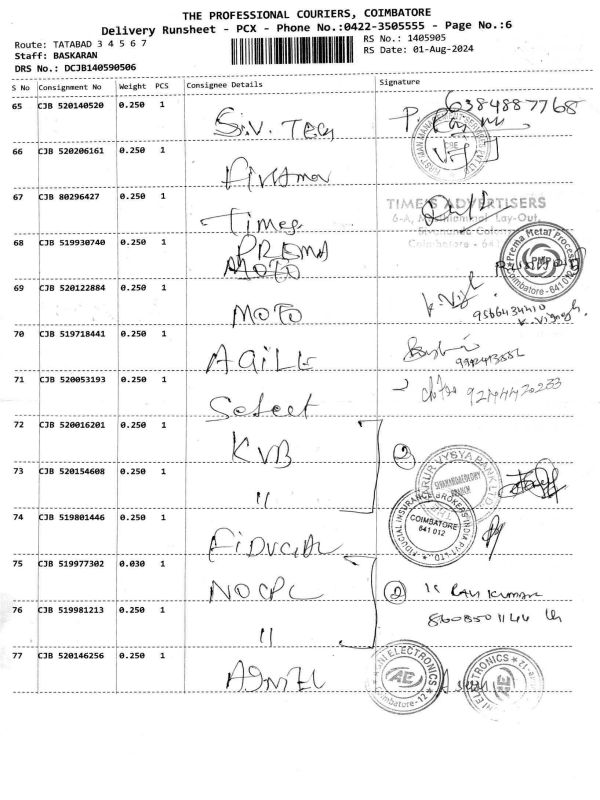 THE PROFESSIONAL COURIERS, COIMBATORE
Delivery Runsheet - PCX - Phone No.:0422-3505555 - Page No.:6
Route: TATABAD 3 4 5 6 7
RS No.: 1405905
Staff: BASKARAN
RS Date: 01-Aug-2024
DRS No.: DCJB140590506
S No Consignment No Weight PCS Consignee Details Signature
65 CJB 520140520 0.250 1 6384887768
66 CJB 520206161 0.250 1
67 CJB 80296427 0.250 1 Times TIMES ADVERTISERS
Lay-Out,
Coimbatore - 641
68 CJB 519930740 0.250 1 PREMA Prema Metal Process Coimbatore - 641 012 PMP
69 CJB 520122884 0.250 1 MOTO K. Vignesh
70 CJB 519718441 0.250 1 AGILE
71 CJB 520053193 0.250 1 Select
72 CJB 520016201 0.250 1 KVB 2
73 CJB 520154608 0.250 1 " KARUR VYSYA BANK LTD BRANCH
74 CJB 519801446 0.250 1 FIDUCIAL FIDUCIAL INSURANCE BROKERS INDIA PVT LTD. COIMBATORE 641 012
75 CJB 519977302 0.030 1 NOCPL 2 RAVI KUMAR
76 CJB 519981213 0.250 1 "
77 CJB 520146256 0.250 1 AGNI ELECTRONICS Coimbatore-12 AE